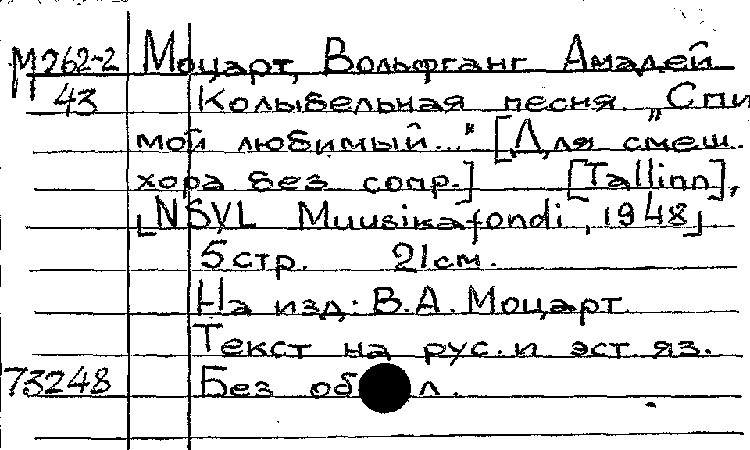 М262-2 Моцарт, Вольфганг Амадей
43 Колыбельная песня. „Спи
мой любимый..." [Для смеш.
хора без сопр.] [Tallinn],
[NSVL Muusikafondi, 1948]
5 стр. 21 см.
На изд: В.А. Моцарт.
Текст на рус. и эст яз.
73248 Без об л.